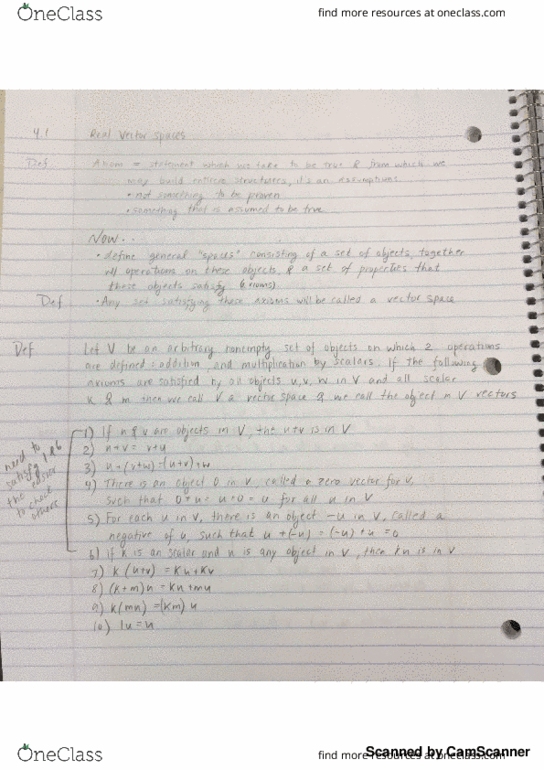 OneClass
find more resources at oneclass.com
4.1 Real Vector Spaces
Def Axiom = statement which we take to be true & from which we
may build entire structures, it's an assumptions
• not something to be proven
• something that is assumed to be true
Now..
• define general "spaces" consisting of a set of objects, together
w/ operations on these objects, & a set of properties that
these objects satisfy (axioms)
Def • Any set satisfying these axioms will be called a vector space
Def Let V be an arbitrary nonempty set of objects on which 2 operations
are defined = addition, and multiplication by scalars. If the following
axioms are satisfied by all objects u, v, w in V and all scalar
K & m then we call V a vector space & we call the object in V vectors
need to satisfy 1 & 6 the easier to check others
1) If u & v are objects in V, the u+v is in V
2) u+v = v+u
3) u+(v+w)=(u+v)+w
4) There is an object 0 in V, called a zero vector for V,
such that 0+u = u+0 = u for all u in V
5) For each u in V, there is an object -u in V, called a
negative of u, such that u +(-u) = (-u) +u = 0
6) if k is an scalar and u is any object in V, then ku is in V
7) k(u+v) = Ku+Kv
8) (k+m)u = Ku+mu
9) k(mu) = (km) u
10) 1u = u
OneClass
find more resources at oneclass.com
Scanned by CamScanner